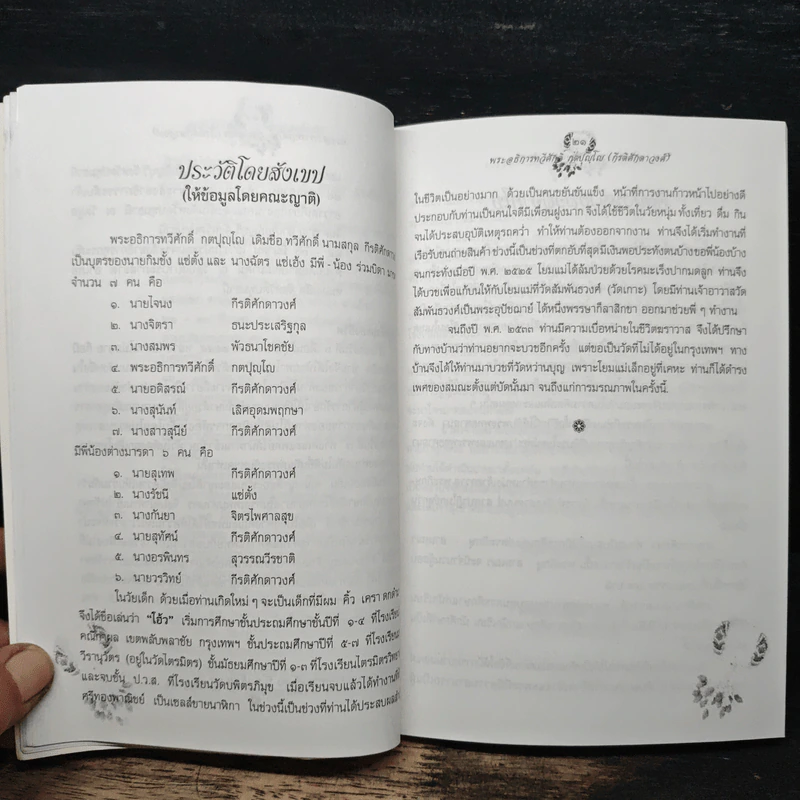 ประวัติโดยสังเขป
(ให้ข้อมูลโดยคณะญาติ)
พระอธิการทวีศักดิ์ กตปุญฺโญ เดิมชื่อ ทวีศักดิ์ นามสกุล กีรติศักดาวงศ์
เป็นบุตรของนายกิมซั้ง แซ่ตั้ง และ นางฉัตร แซ่เฮ้ง มีพี่ - น้อง ร่วมบิดา
จำนวน ๗ คน คือ
๑. นายไจนง กีรติศักดาวงศ์
๒. นางจิตรา ธนะประเสริฐกูล
๓. นางสมพร พัวธนาโชคชัย
๔. พระอธิการทวีศักดิ์ กตปุญฺโญ
๕. นายอดิสรณ์ กีรติศักดาวงศ์
๖. นางสุนันท์ เลิศอุดมพฤกษา
๗. นางสาวสุนีย์ กีรติศักดาวงศ์
มีพี่น้องต่างมารดา ๖ คน คือ
๑. นายสุเทพ กีรติศักดาวงศ์
๒. นางรัชนี แซ่ตั้ง
๓. นางกันยา จิตรไพศาลสุข
๔. นายสุทัศน์ กีรติศักดาวงศ์
๕. นางอรพินทร สุวรรณวีรชาติ
๖. นายวรวิทย์ กีรติศักดาวงศ์
ในวัยเด็ก ด้วยเมื่อท่านเกิดใหม่ ๆ จะเป็นเด็กที่มีผม คิ้ว เครา ดกดำ
จึงได้ชื่อเล่นว่า "โอ้ว" เริ่มการศึกษาชั้นประถมศึกษาชั้นปีที่ ๑-๔ ที่โรงเรียน
เขตพลับพลาชัย กรุงเทพฯ ชั้นประถมศึกษาปีที่ ๕-๗ ที่โรงเรียน
วีรานุวัตร (อยู่ในวัดไตรมิตร) ชั้นมัธยมศึกษาปีที่ ๑-๓ ที่โรงเรียนไตรมิตรวิทยา
และจบชั้น ป.ว.ส. ที่โรงเรียนวัดบพิตรภิมุข เมื่อเรียนจบแล้วได้ทำงานที่
ศรีทองพาณิชย์ เป็นเซลส์ขายนาฬิกา ในช่วงนี้เป็นช่วงที่ท่านได้ประสบผลสำ
๒๑
พระอธิการทวีศักดิ์ กตปุญฺโญ (กีรติศักดาวงศ์)
ในชีวิตเป็นอย่างมาก ด้วยเป็นคนขยันขันแข็ง หน้าที่การงานก้าวหน้าไปอย่างดี
ประกอบกับท่านเป็นคนใจดีมีเพื่อนฝูงมาก จึงได้ใช้ชีวิตในวัยหนุ่ม ทั้งเที่ยว ดื่ม กิน
จนได้ประสบอุบัติเหตุรถคว่ำ ทำให้ท่านต้องออกจากงาน ท่านจึงได้เริ่มทำงานที่
เรือรับขนถ่ายสินค้า ช่วงนี้เป็นช่วงที่ตกอับที่สุดมีเงินพอประทังตนบ้างขอพี่น้องบ้าง
จนกระทั่งเมื่อปี พ.ศ. ๒๕๒๕ โยมแม่ได้ล้มป่วยด้วยโรคมะเร็งปากมดลูก ท่านจึง
ได้บวชเพื่อแก้บนให้กับโยมแม่ที่วัดสัมพันธวงศ์ (วัดเกาะ) โดยมีท่านเจ้าอาวาสวัด
สัมพันธวงศ์เป็นพระอุปัชฌาย์ ได้หนึ่งพรรษาก็ลาสิกขา ออกมาช่วยพี่ ๆ ทำงาน
จนถึงปี พ.ศ. ๒๕๓๓ ท่านมีความเบื่อหน่ายในชีวิตฆราวาส จึงได้ปรึกษา
กับทางบ้านว่าท่านอยากจะบวชอีกครั้ง แต่ขอเป็นวัดที่ไม่ได้อยู่ในกรุงเทพฯ ทาง
บ้านจึงได้ให้ท่านมาบวชที่วัดหว่านบุญ เพราะโยมแม่เล็กอยู่ที่เคหะ ท่านก็ได้ดำรง
เพศของสมณะตั้งแต่บัดนั้นมา จนถึงแก่การมรณภาพในครั้งนี้.